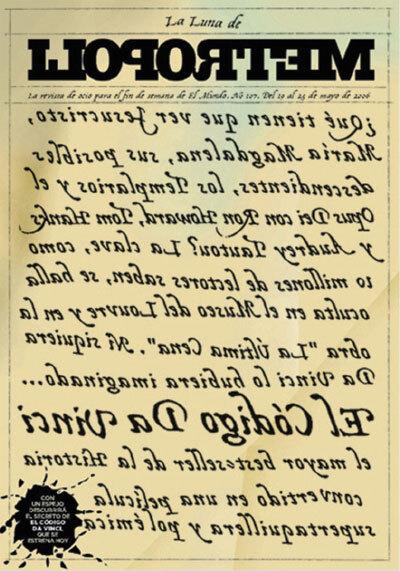 La Luna de
METROPOLI
La revista de ocio para el fin de semana de El Mundo. No 107. Del 19 al 25 de mayo de 2006
¿Qué tienen que ver Jesucristo,
María Magdalena, sus posibles
descendientes, los Templarios y el
Opus Dei con Ron Howard, Tom Hanks
y Audrey Tautou? La clave, como
10 millones de lectores saben, se halla
oculta en el Museo del Louvre y en la
obra "La Última Cena". Ni siquiera
Da Vinci lo hubiera imaginado...
El Código Da Vinci
el mayor best-seller de la Historia
convertido en una película
supertaquillera y polémica
CON
UN ESPEJO
DESCUBRIRÁ
EL SECRETO DE
EL CÓDIGO
DA VINCI,
QUE SE
ESTRENA HOY